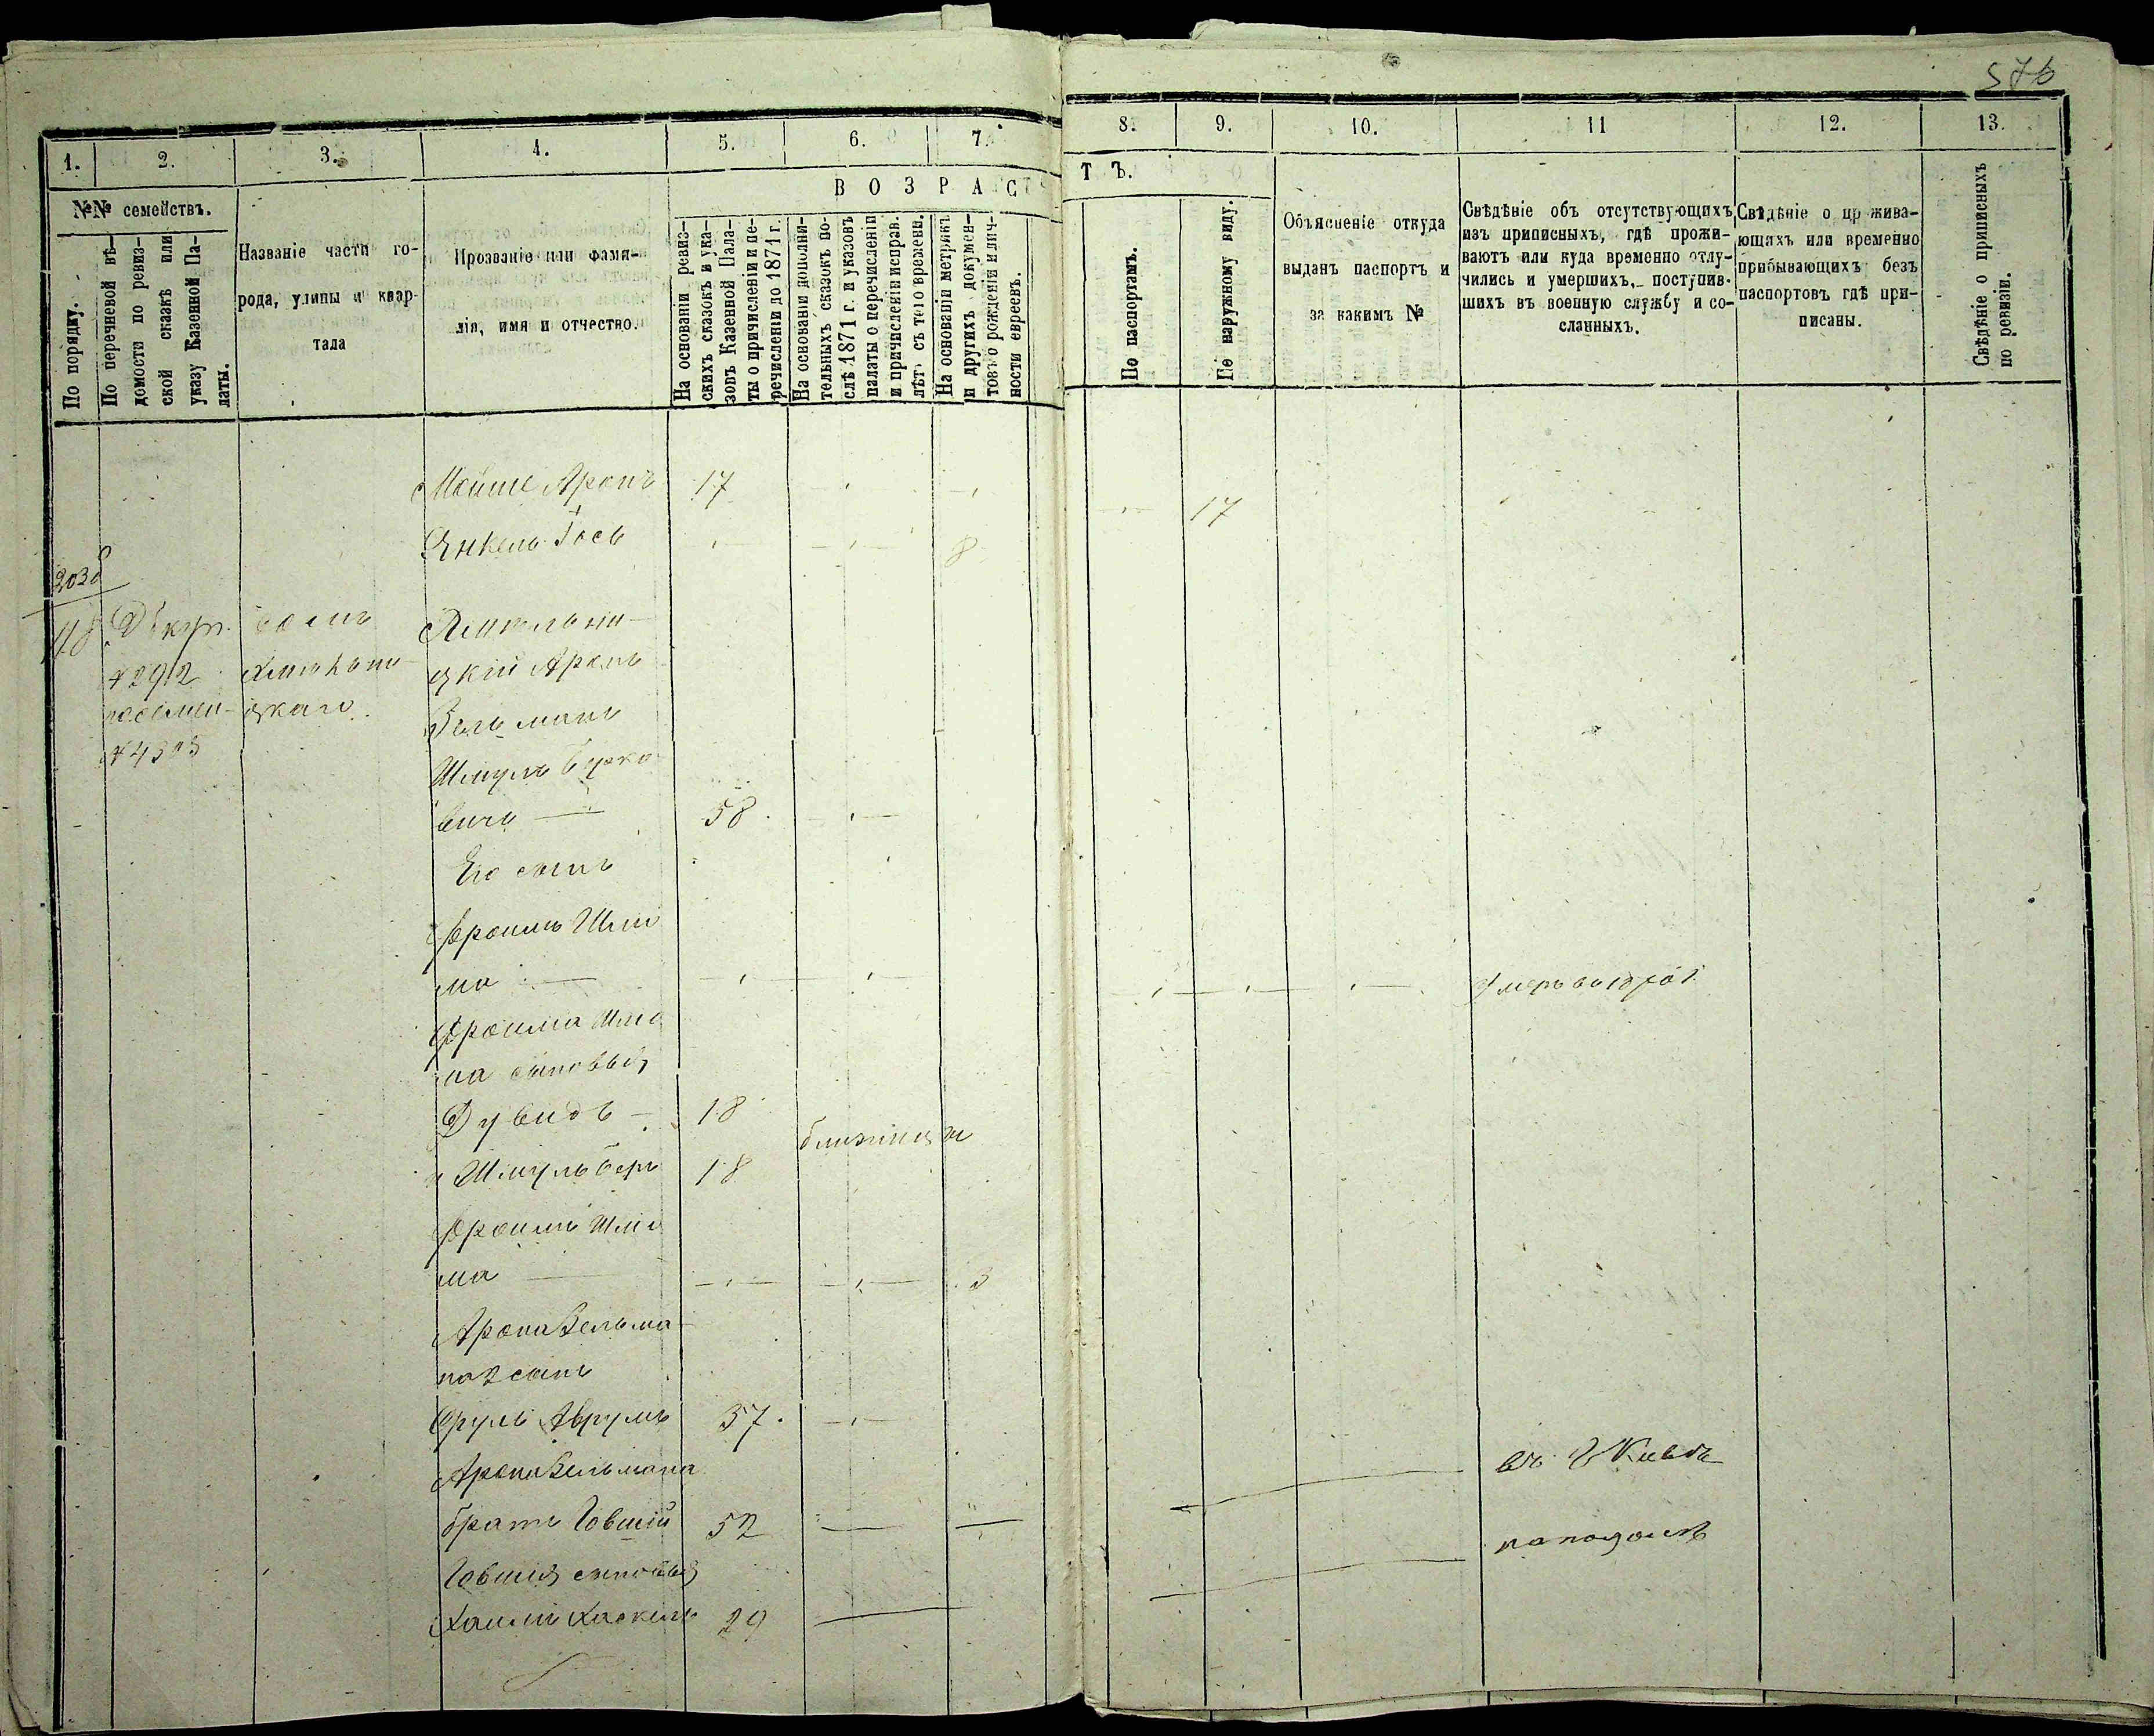 576
1. 2. 3. 4. 5. 6. 7. 8. 9. 10. 11 12. 13.
№№ семействъ.
По порядку.
По перечневой вѣ-
домости по ревиз-
ской сказкѣ или
указу Казенной Па-
латы.
Названіе части го-
рода, улицы и квар-
тала
Прозваніе или фами-
лія, имя и отчество.
ВОЗРАСТЪ.
На основаніи ревиз-
скихъ сказокъ и ука-
зовъ Казенной Пала-
ты о причисленіи и пе-
речисленіи до 1871 г.
На основаніи дополни-
тельныхъ сказокъ по-
слѣ 1871 г. и указовъ
палаты о перечисленіи
и причисленіи исправ.
лѣтъ съ того времени.
На основаніи метрикъ
и другихъ докумен-
товъ о рожденіи и лич-
ности евреевъ.
По паспортамъ.
По наружному виду.
Объясненіе откуда
выданъ паспортъ и
за какимъ №
Свѣдѣніе объ отсутствующихъ
изъ приписныхъ, гдѣ прожи-
ваютъ или куда временно отлу-
чились и умершихъ, поступив-
шихъ въ военную службу и со-
сланныхъ.
Свѣдѣніе о прожива-
ющихъ или временно
прибывающихъ безъ
паспортовъ гдѣ при-
писаны.
Свѣдѣніе о приписныхъ
по ревизіи.
Мойше Аронъ 17 17
Янкель Іось 8
домъ
цкаго
№ 292
цкій Аронъ
Зельманъ
Шмуль Берко
вичъ 58
Его сынъ
Фроимъ Шлио
ма умеръ
Фроима Шлио
ма сыновья
Дувидъ 18
близнецы
и Шмуль Беръ 18
Фроимъ Шлио
ма 3
Арона Зельма-
на 2 сынъ
Сруль Аврумъ 37.
Арона Зельмана въ г. Киевѣ
братъ Іовшій 52
Іовшія сыновья
Хаимъ Хаскель 29